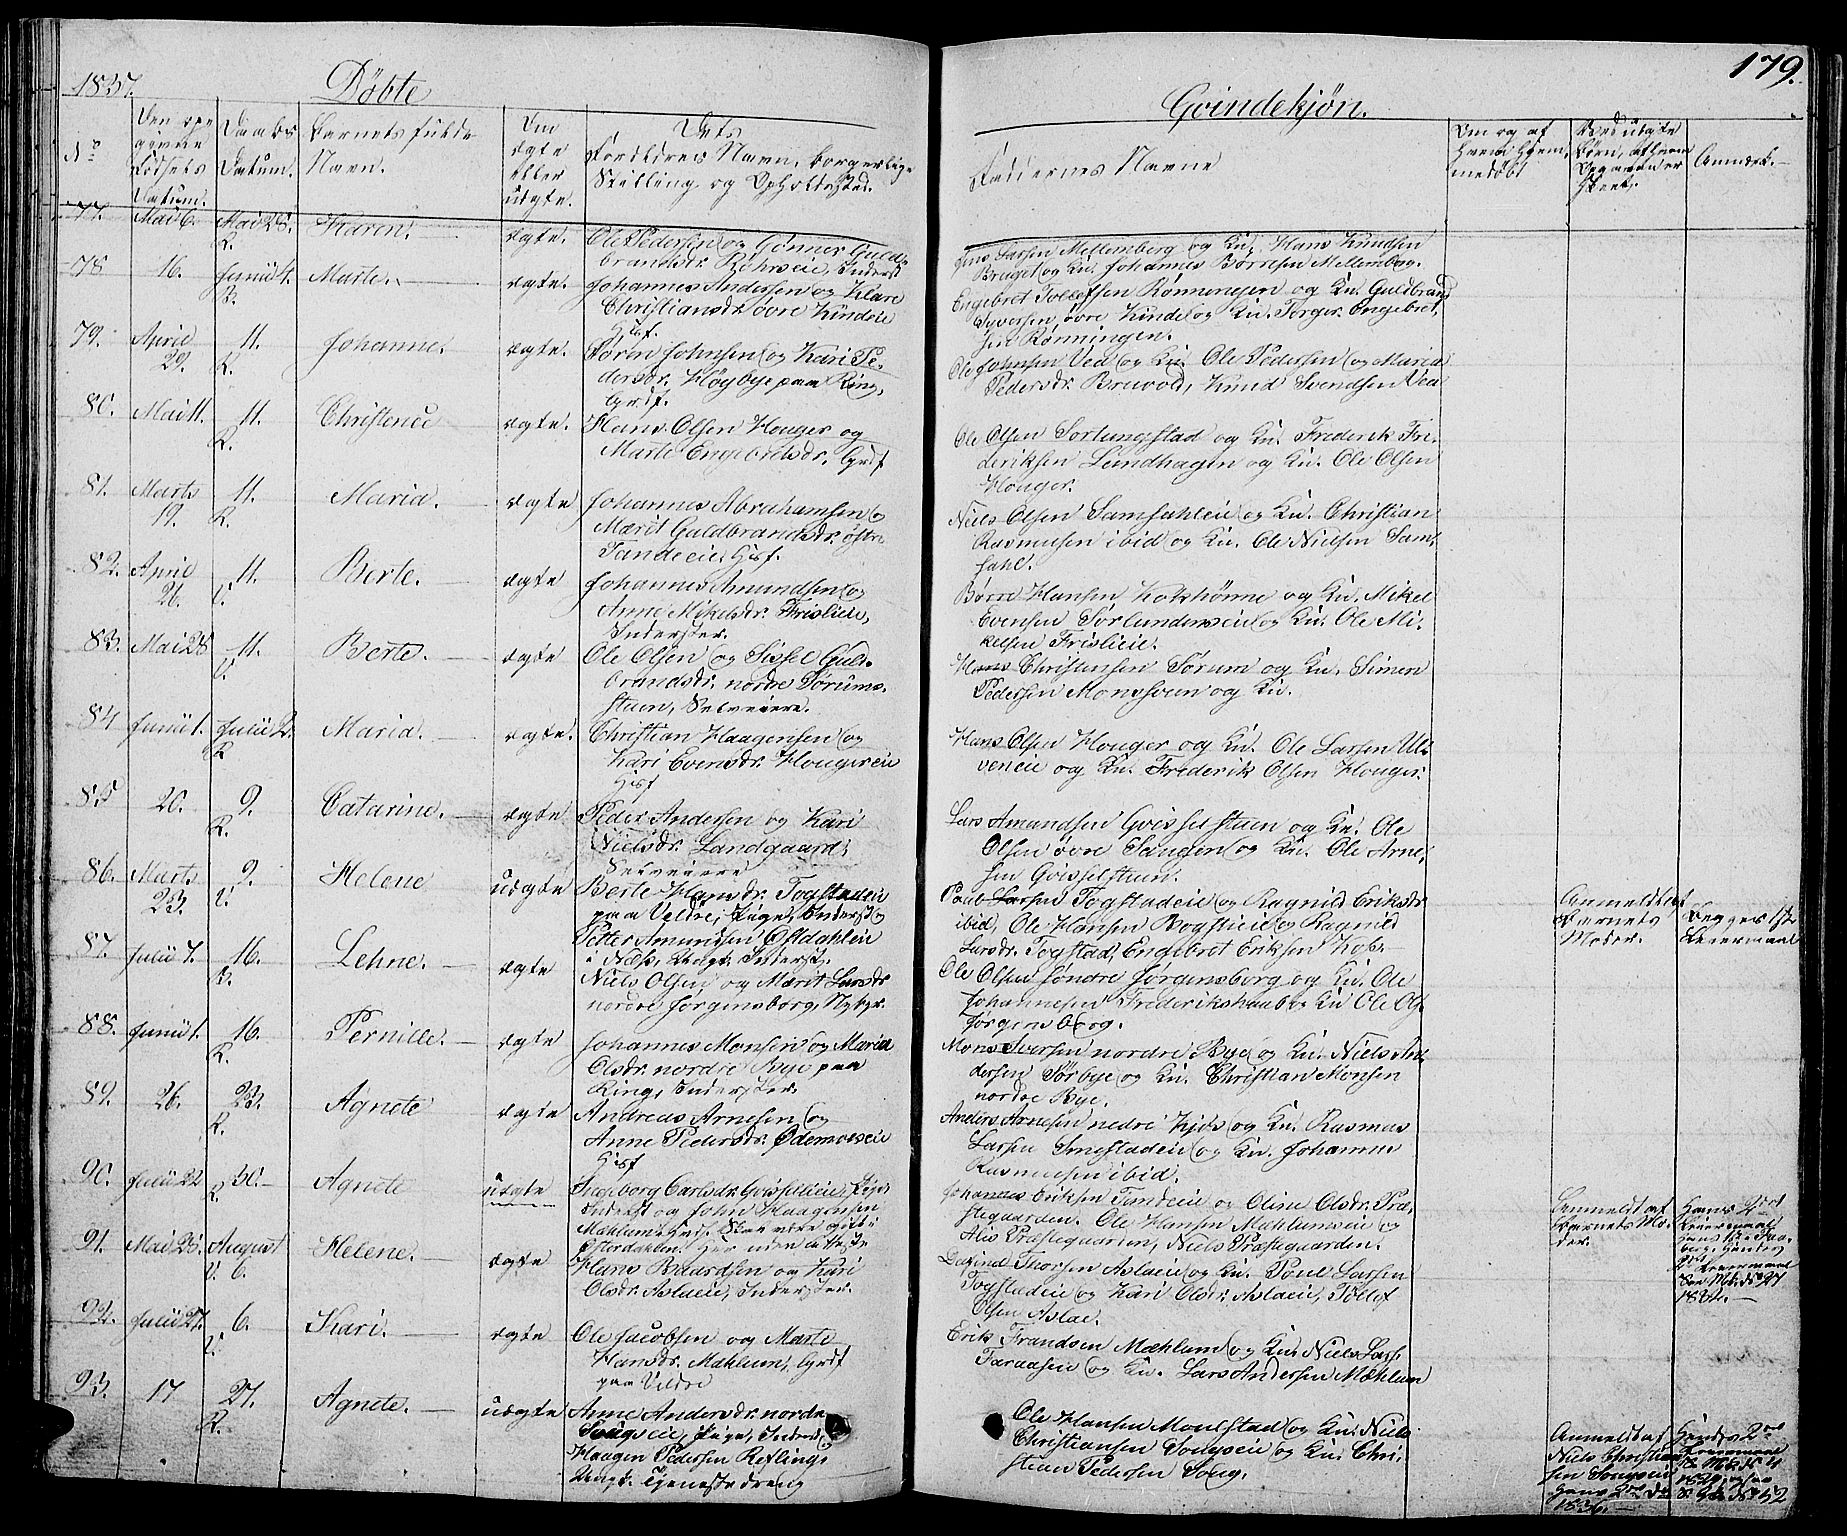 1837.
Døbte
Qvindekjøn.
179.
No
Den opgivne Fødsels Datum.
Daabs Datum.
Barnets fulde Navn.
Om ægte eller uægte.
Dets Forældres Navn, borgerlige Stilling og Opholdssted.
Faddernes Navne
Om og af hvem hjemmedøbt
Ved uægte Børn, af hvem Opgaven er skeet.
Anmærk.
77. Mai 6. Mai 28. R. Karen. ægte.
Ole Pedersen og Gunner Guldbrandsdr. Inderst
Jens Larsen Mellemberg og Ku. Hans Knudsen
Bruget og Ku. Johannes Børresen Mellemberg.
78 16. Junii 4. R. Marte. ægte.
Johannes Andersen og Klare
Christiansdr. øvre Kindeie
Husf.
Engebret Tollefsen Rønningen og Ku. Guldbrand
Syversen øvre Kinde og Ku. Torger Engebret-
sen Rønningen.
79. April 29. 11. R. Johanne. ægte.
Søren Johnsen og Kari Pe-
dersdr. Høgbye paa Ring,
Grdf.
Ole Johnsen Vea og Ku. Ole Pedersen og Maria
Pedersdr. Bruvold, Knud Svendsen Vea
80. Mai 11. 11. R. Christence ægte.
Hans Olsen Houger og
Marte Engebretsdr. Grdf
Ole Olsen Sorlungstad og Ku. Frederik Fre-
deriksen Lundhagen og Ku. Ole Olsen
Houger.
81. Marts 19. 11. R. Maria. ægte
Johannes Abrahamsen og
Marit Guldbrandsdr. østre
Tandeeie, Husf.
Niels Olsen Samsahleie og Ku. Christian
Rasmusen ibid og Ku. Ole Nielsen Sam-
sahl.
82. April 26. 11. V. Berte. ægte
Johannes Amundsen og
Anne Mikelsdr. Frislieie,
Inderster.
Børre Hansen og Ku. Mikel
Evensen Sørlundeneie og Ku. Ole Mi-
kelsen Frislieie.
83. Mai 28 11. V. Berte. ægte
Ole Olsen og Sissel Guld-
brandsdr. nordre Sørums-
stuen, Selveiere.
Hans Christiansen Sørum og Ku. Simen
Pedersen Monssveen og Ku.
84 Junii 1. Julii 2. R. Maria. ægte.
Christian Haagensen og
Kari Evensdr. Hougereie
Husf
Hans Olsen Houger og Ku. Ole Larsen Ul-
veneie og Ku. Frederik Olsen Houger.
85 20. 9. R. Catarine. ægte
Peder Andersen og Kari
Nielsdr. Landgaard,
Selveiere
Lars Amundsen Gvisselstuen og Ku. Ole
Olsen øvre Saugen og Ku. Ole Arne-
sen Gvisselstuen.
86. Marts 23. 9. V. Helene uægte
Berte Hansdr. Togstadeie
paa Veldre, Pige, Inderst og
Petter Amundsen Ofstdahleie
i Næs, Ungk. Inderst.
Poul Larsen Togstadeie og Ragnild Eriksdr.
ibid, Ole Hansen Bogstieie og Ragnild
Larsdr. Togstad, Engebret Eriksen
Anmeldt af
Barnets
Moder.
Begges 1ste
Leiermaal
87. Julii 7. 16. R. Lehne. ægte
Niels Olsen og Marit Larsdr.
nordre Jørgensborg,
Ole Olsen søndre Jørgensborg og Ku. Ole
Johannesen Frederikshaab og Ku. Ole Ols.
Jørgensborg.
88. Junii 1. 16. R. Pernille. ægte
Johannes Monsen og Maria
Olsdr. nordre Bye paa
Ring, Inderster.
Mons Iversen nordre Bye og Ku. Niels An-
dersen Sørbye og Ku. Christian Monsen
nordre Bye.
89. 26. 23. R. Agnete ægte
Andreas Arnesen og
Anne Pedersdr. Ødemoeseie
Husf
Anders Arnesen nedre Kjos og Ku. Rasmus
Larsen Smestadeie og Ku. Johannes
Rasmusen ibid.
90. Julii 22 30. R. Agnete uægte
Ingeborg Carlsdr. Gvisselieie, Pige,
Inderst og John Haagensen
Mæhlum, skal være gift i
Østerdahlen.
Johannes Eriksen Tandeeie og Oline Olsdr. Præ-
stegaarden. Ole Hansen Mæhlumseie og
Alis Præstegaarden, Niels Præstegaarden.
Anmeldt af
Barnets Mo-
der.
Hans 2det
Leiermaal
91. Mai 25. August 6. V. Helene. ægte
Hans Baardsen og Kari
Olsdr. Aslaeie, Inderster.
Thorsen Aslaeie og Ku. Poul Larsen
Togstadeie og Kari Olsdr. Aslaeie, Tollef
Olsen Aslae.
92. Julii 27. 6. V. Kari. ægte
Ole Jacobsen og Marte
Hansdr. Mæhlum, Grdf
paa Veldre
Erik Frandsen Mæhlum og Ku. Niels Lars.
Taraaseie og Ku. Lars Andersen Mæhlum
93. 17 27. R. Agnete. uægte
Anne Andersdr. nordre
Sougseie, Pige, Inderst, og
Haagen Pedersen Refling,
Ungk. Tjenestedreng
Ole Hansen Moelstad og Ku. Niels
Christiansen Sougseie og Ku. Chri-
stian Pedersen Soug.
Anmeldt af
Niels Christian-
sen Sougseie
Hendes 2det
Leiermaal